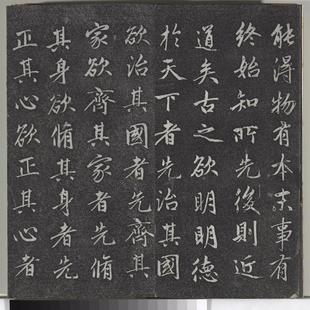 能得物有本末事有
終始知所先後則近
道矣古之欲明明德
於天下者先治其國
欲治其國者先齊其
家欲齊其家者先脩
其身欲脩其身者先
正其心欲正其心者